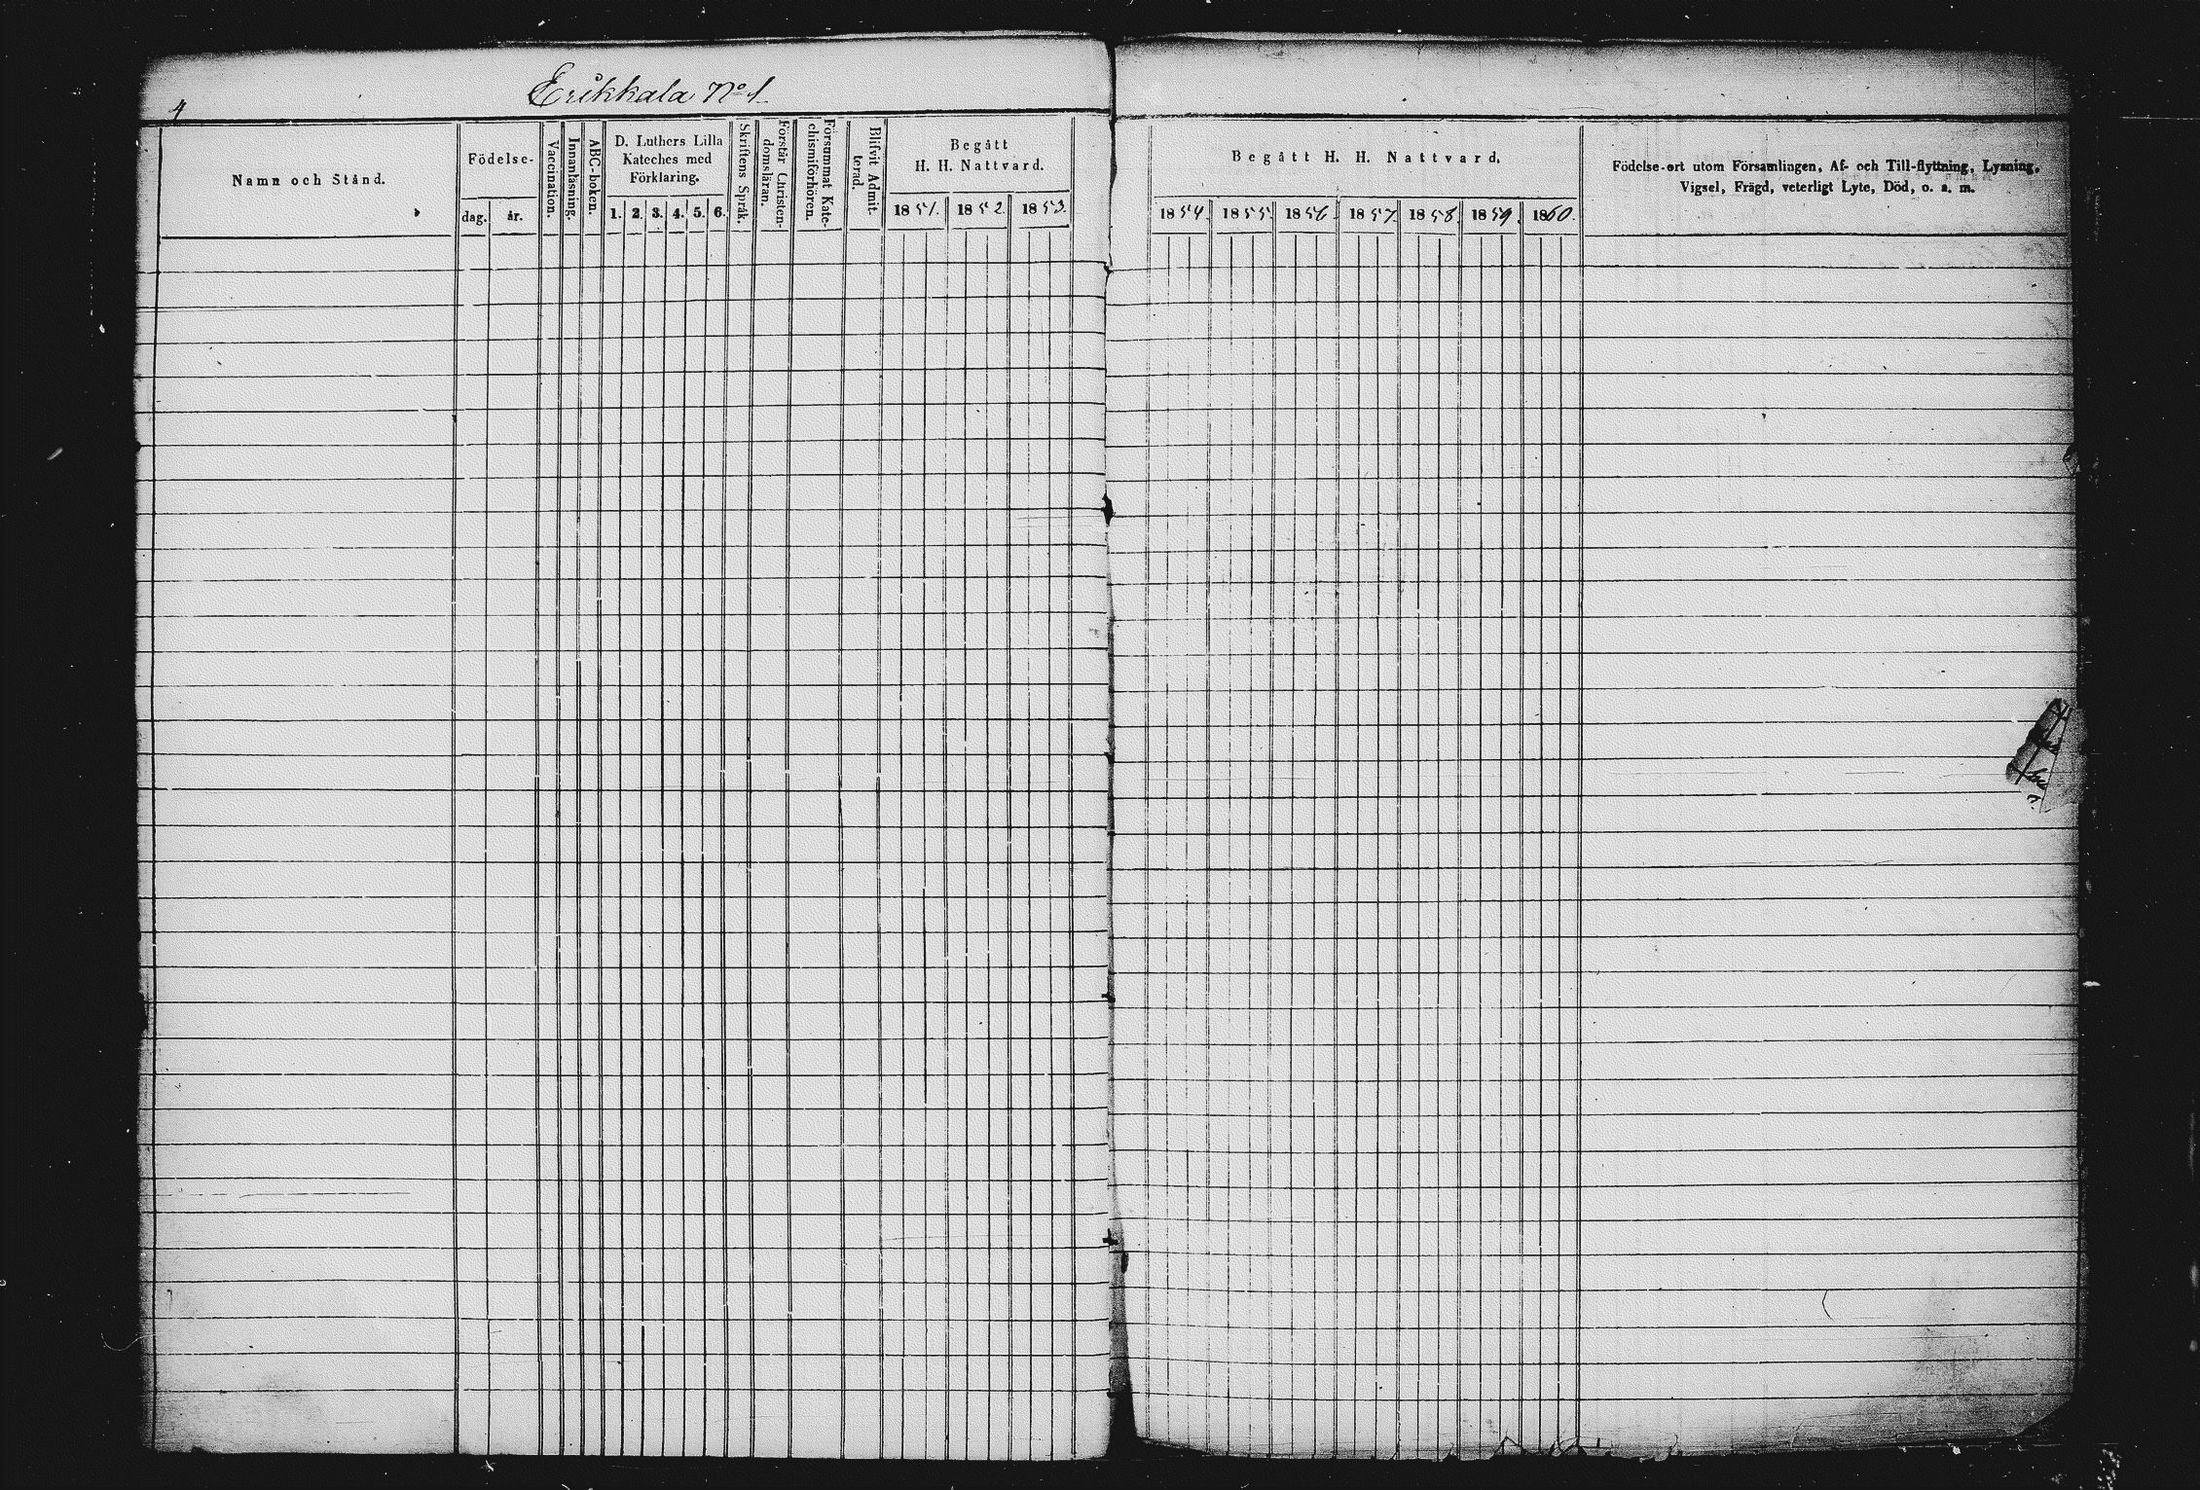 4
Erikkala No 1.
Namn och Stånd.
Födelse-
dag.
år.
Vaccination.
Innanläsning.
ABC-boken.
D. Luthers Lilla
Kateches med
Förklaring.
1. 2. 3. 4. 5. 6.
Skriftens Språk.
Förstår Christen-
domsläran.
Försummat Kate-
chismiförhören.
Blifvit Admit-
terad.
Begått
H. H. Nattvard.
1851. 1852. 1853.
Begått H. H. Nattvard.
1854. 1855. 1856. 1857. 1858. 1859. 1860.
Födelse-ort utom Församlingen, Af- och Till-flyttning, Lysning,
Vigsel, Frägd, veterligt Lyte, Död, o. s. m.